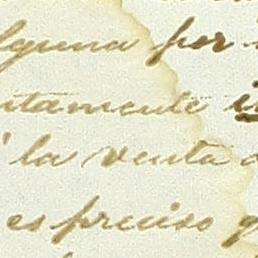 lguna por
ntamente
la venta
es preciso